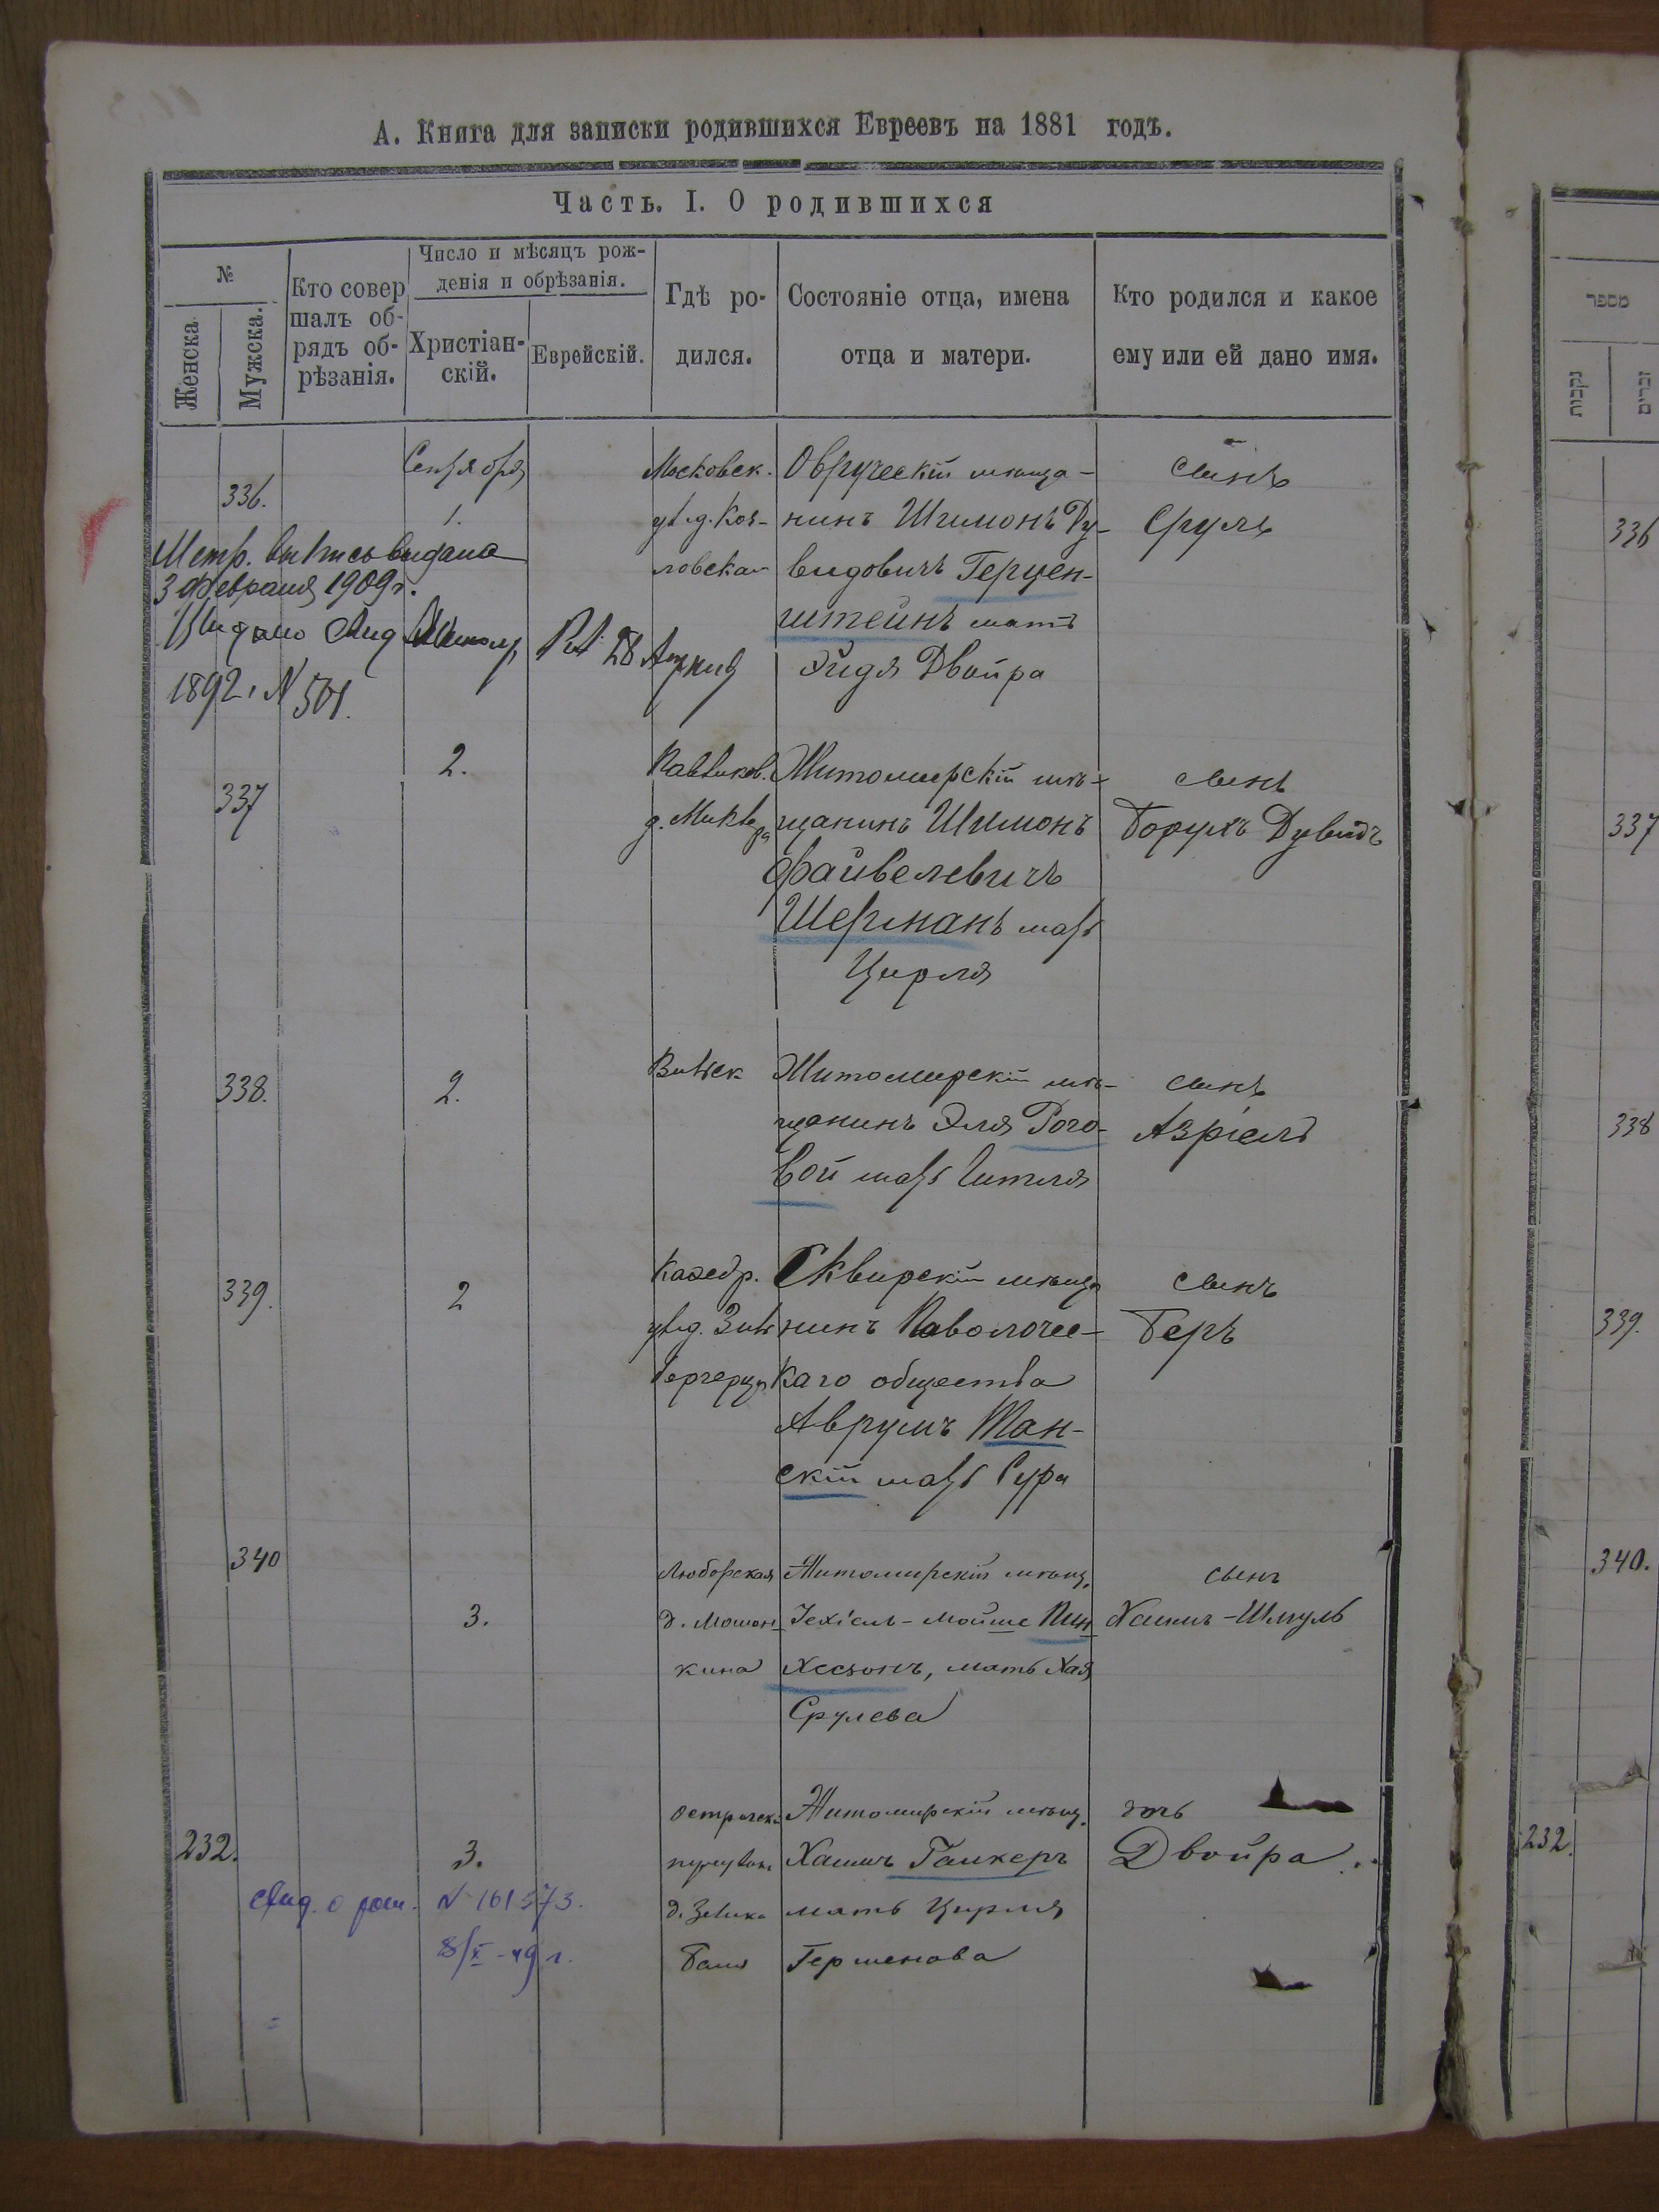 А. Книга для записки родившихся Евреевъ на 1881 годъ.
Часть. I. О родившихся
№
Женска
Мужска.
Кто совер
шалъ об-
рядъ об-
рѣзанія.
Число и мѣсяцъ рож-
денія и обрѣзанія.
Христіан-
скій.
Еврейскій.
Гдѣ ро-
дился.
Состояніе отца, имена
отца и матери.
Кто родился и какое
ему или ей дано имя.
336.
Сентября
1.
Московск.
Овручскій мѣща-
нинъ Шимонъ Ду-
видовичъ Герцен-
штейнъ мать
Эйдя Двойра
сынъ
Сруль
Метр. выпись выдана
3 февраля 1909 г.
28
1892 N 501.
337
2.
Житомирскій мѣ-
щанинъ Шимонъ
Файвелевичъ
Шерманъ мать
Цирля
сынъ
Борухъ Дувидъ
338.
2.
Житомирскій мѣ-
щанинъ Эля Рого-
вой мать Гитля
сынъ
Азріель
339.
2
Кафедр.
Сквирскій мѣща
нинъ Паволочс-
каго общества
Аврумъ Тан-
скій мать Сура
сынъ
Беръ
340
3.
Любарская
кина
Житомирскій мѣщ.
Іехіель-Мойше Пин
хесзонъ, мать Хая
Срулева
сынъ
Хаимъ-Шмуль
232.
3.
Житомирскій мѣщ.
Хаимъ Ганкеръ
мать Цирля
Гершенова
дочь
Двойра
свид. о рож. N 161573.
8/X-49 г.
מספר
נקבות
זכרים
336
337
338
339.
340.
232.